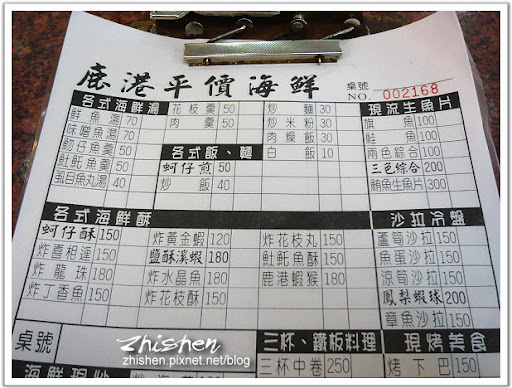 鹿港平價海鮮
桌號
NO. 002168
各式海鮮湯 花枝羹 50 炒麵 30 現流生魚片
鮮魚湯 70 肉羹 50 炒米粉 30 旗魚 100
味噌魚湯 70 肉燥飯 30 鮭魚 100
魩仔魚羹 50 各式飯、麵 白飯 10 兩色綜合 100
魠魠魚羹 50 蚵仔煎 50 三色綜合 200
虱目魚丸湯 40 炒飯 40 鮪魚生魚片 300
各式海鮮酥 沙拉冷盤
蚵仔酥 150 炸黃金蝦 120 炸花枝丸 150 蘆筍沙拉 150
炸喜相逢 150 鹽酥溪蝦 180 魠魠魚酥 150 魚蛋沙拉 150
炸龍珠 180 炸水晶魚 150 鹿港蝦猴 180 涼筍沙拉 150
炸丁香魚 150 炸花枝酥 150 鳳梨蝦球 200
章魚沙拉 150
桌號 三杯、鐵板料理 現烤美食
三杯中卷 250 烤下巴
海鮮現炒
Zhishen
zhishen.pixnet.net/blog